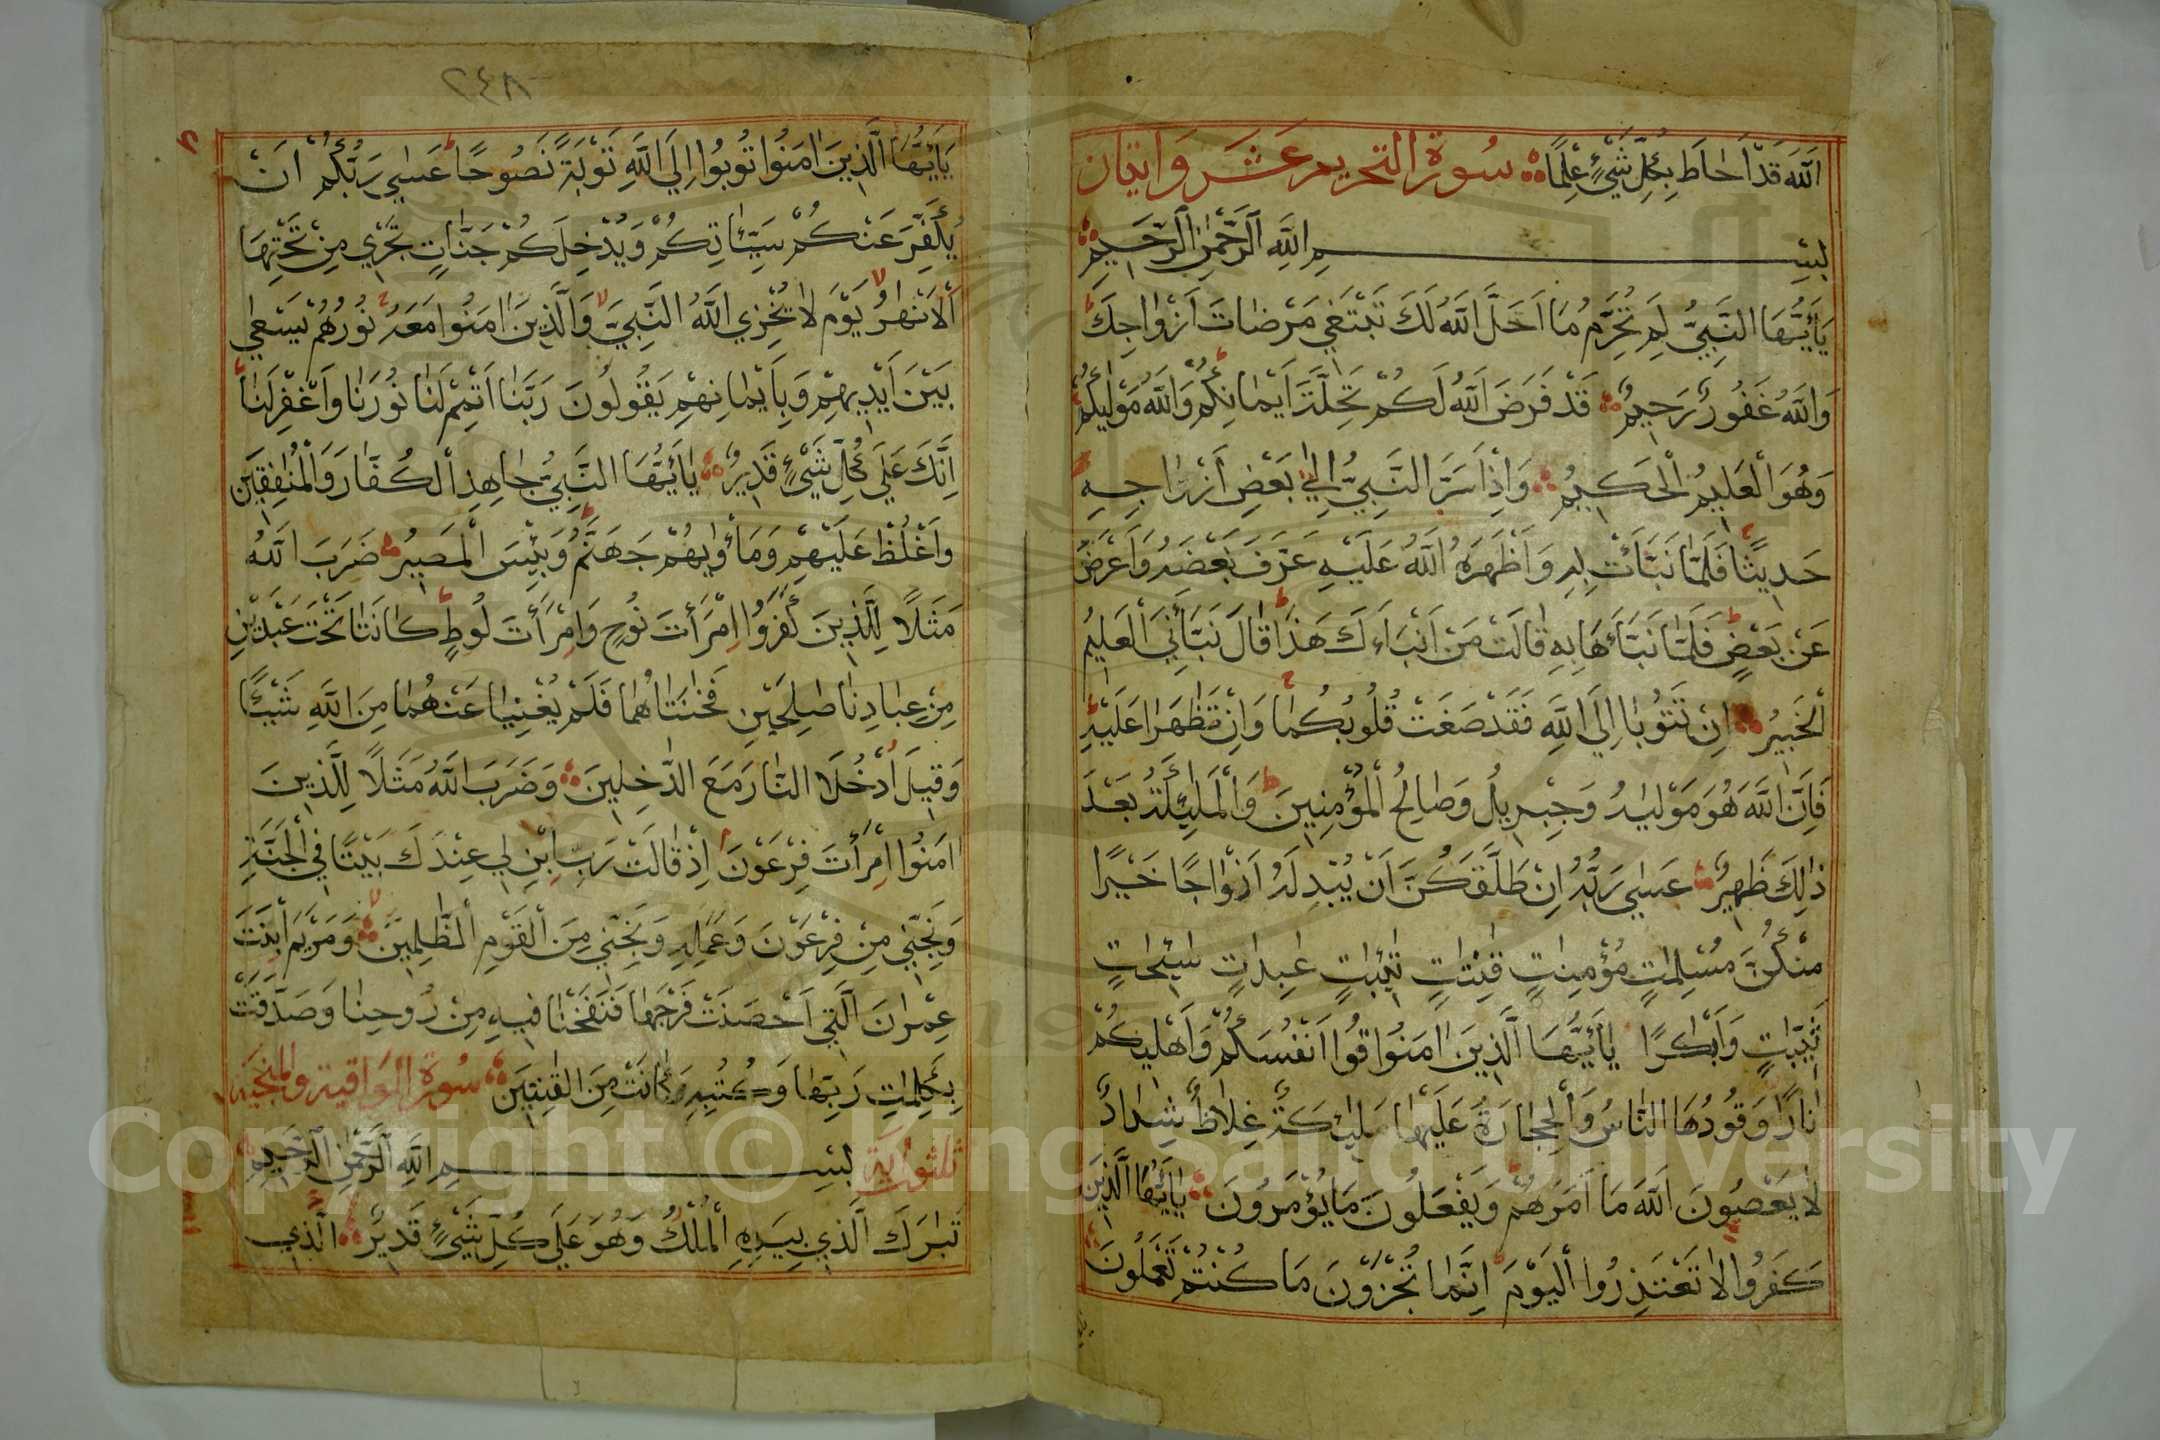 اَللّٰهَ قَدْ اَحَاطَ بِكُلِّ شَيْءٍ عِلْمًا سورة التحريم عشر وايتان
بِسْمِ اللّٰهِ الرَّحْمٰنِ الرَّحِيمِ
يَاۤاَيُّهَا النَّبِيُّ لِمَ تُحَرِّمُ مَا اَحَلَّ اللّٰهُ لَكَ تَبْتَغِي مَرْضَاتَ اَزْوَاجِكَ
وَاللّٰهُ غَفُورٌ رَحِيمٌ قَدْ فَرَضَ اللّٰهُ لَكُمْ تَحِلَّةَ اَيْمَانِكُمْ وَاللّٰهُ مَوْلٰيكُمْ
وَهُوَ الْعَلِيمُ الْحَكِيمُ وَاِذْ اَسَرَّ النَّبِيُّ اِلٰى بَعْضِ اَزْوَاجِهِ
حَدِيثًا فَلَمَّا نَبَّاَتْ بِهِ وَاَظْهَرَهُ اللّٰهُ عَلَيْهِ عَرَّفَ بَعْضَهُ وَاَعْرَضَ
عَنْ بَعْضٍ فَلَمَّا نَبَّاَهَا بِهِ قَالَتْ مَنْ اَنْبَاَكَ هَذَا قَالَ نَبَّاَنِيَ الْعَلِيمُ
الْخَبِيرُ اِنْ تَتُوبَا اِلَى اللّٰهِ فَقَدْ صَغَتْ قُلُوبُكُمَا وَاِنْ تَظَاهَرَا عَلَيْهِ
فَاِنَّ اللّٰهَ هُوَ مَوْلٰيهُ وَجِبْرِيلُ وَصَالِحُ الْمُؤْمِنِينَ وَالْمَلٰئِكَةُ بَعْدَ
ذٰلِكَ ظَهِيرٌ عَسٰى رَبُّهُ اِنْ طَلَّقَكُنَّ اَنْ يُبْدِلَهُ اَزْوَاجًا خَيْرًا
مِنْكُنَّ مُسْلِمَاتٍ مُؤْمِنَاتٍ قَانِتَاتٍ تَائِبَاتٍ عَابِدَاتٍ سَائِحَاتٍ
ثَيِّبَاتٍ وَاَبْكَارًا يَاۤاَيُّهَا الَّذِينَ اٰمَنُوا قُوا اَنْفُسَكُمْ وَاَهْلِيكُمْ
نَارًا وَقُودُهَا النَّاسُ وَالْحِجَارَةُ عَلَيْهَا مَلٰئِكَةٌ غِلَاظٌ شِدَادٌ
لَا يَعْصُونَ اللّٰهَ مَا اَمَرَهُمْ وَيَفْعَلُونَ مَا يُؤْمَرُونَ يَاۤاَيُّهَا الَّذِينَ
كَفَرُوا لَا تَعْتَذِرُوا الْيَوْمَ اِنَّمَا تُجْزَوْنَ مَا كُنْتُمْ تَعْمَلُونَ
يَاۤاَيُّهَا الَّذِينَ اٰمَنُوا تُوبُوا اِلَى اللّٰهِ تَوْبَةً نَصُوحًا عَسٰى رَبُّكُمْ اَنْ
يُكَفِّرَ عَنْكُمْ سَيِّئَاتِكُمْ وَيُدْخِلَكُمْ جَنَّاتٍ تَجْرِي مِنْ تَحْتِهَا
الْاَنْهَارُ يَوْمَ لَا يُخْزِي اللّٰهُ النَّبِيَّ وَالَّذِينَ اٰمَنُوا مَعَهُ نُورُهُمْ يَسْعٰى
بَيْنَ اَيْدِيهِمْ وَبِاَيْمَانِهِمْ يَقُولُونَ رَبَّنَا اَتْمِمْ لَنَا نُورَنَا وَاغْفِرْ لَنَا
اِنَّكَ عَلٰى كُلِّ شَيْءٍ قَدِيرٌ يَاۤاَيُّهَا النَّبِيُّ جَاهِدِ الْكُفَّارَ وَالْمُنَافِقِينَ
وَاغْلُظْ عَلَيْهِمْ وَمَاْوٰيهُمْ جَهَنَّمُ وَبِئْسَ الْمَصِيرُ ضَرَبَ اللّٰهُ
مَثَلًا لِلَّذِينَ كَفَرُوا امْرَاَتَ نُوحٍ وَامْرَاَتَ لُوطٍ كَانَتَا تَحْتَ عَبْدَيْنِ
مِنْ عِبَادِنَا صَالِحَيْنِ فَخَانَتَاهُمَا فَلَمْ يُغْنِيَا عَنْهُمَا مِنَ اللّٰهِ شَيْئًا
وَقِيلَ ادْخُلَا النَّارَ مَعَ الدَّاخِلِينَ وَضَرَبَ اللّٰهُ مَثَلًا لِلَّذِينَ
اٰمَنُوا امْرَاَتَ فِرْعَوْنَ اِذْ قَالَتْ رَبِّ ابْنِ لِي عِنْدَكَ بَيْتًا فِي الْجَنَّةِ
وَنَجِّنِي مِنْ فِرْعَوْنَ وَعَمَلِهِ وَنَجِّنِي مِنَ الْقَوْمِ الظَّالِمِينَ وَمَرْيَمَ ابْنَتَ
عِمْرَانَ الَّتِي اَحْصَنَتْ فَرْجَهَا فَنَفَخْنَا فِيهِ مِنْ رُوحِنَا وَصَدَّقَتْ
بِكَلِمَاتِ رَبِّهَا وَكُتُبِهِ وَكَانَتْ مِنَ الْقَانِتِينَ سورة الواقية والمنجية
ثلثون اية بِسْمِ اللّٰهِ الرَّحْمٰنِ الرَّحِيمِ
تَبَارَكَ الَّذِي بِيَدِهِ الْمُلْكُ وَهُوَ عَلٰى كُلِّ شَيْءٍ قَدِيرٌ الَّذِي
Copyright © King Saud University